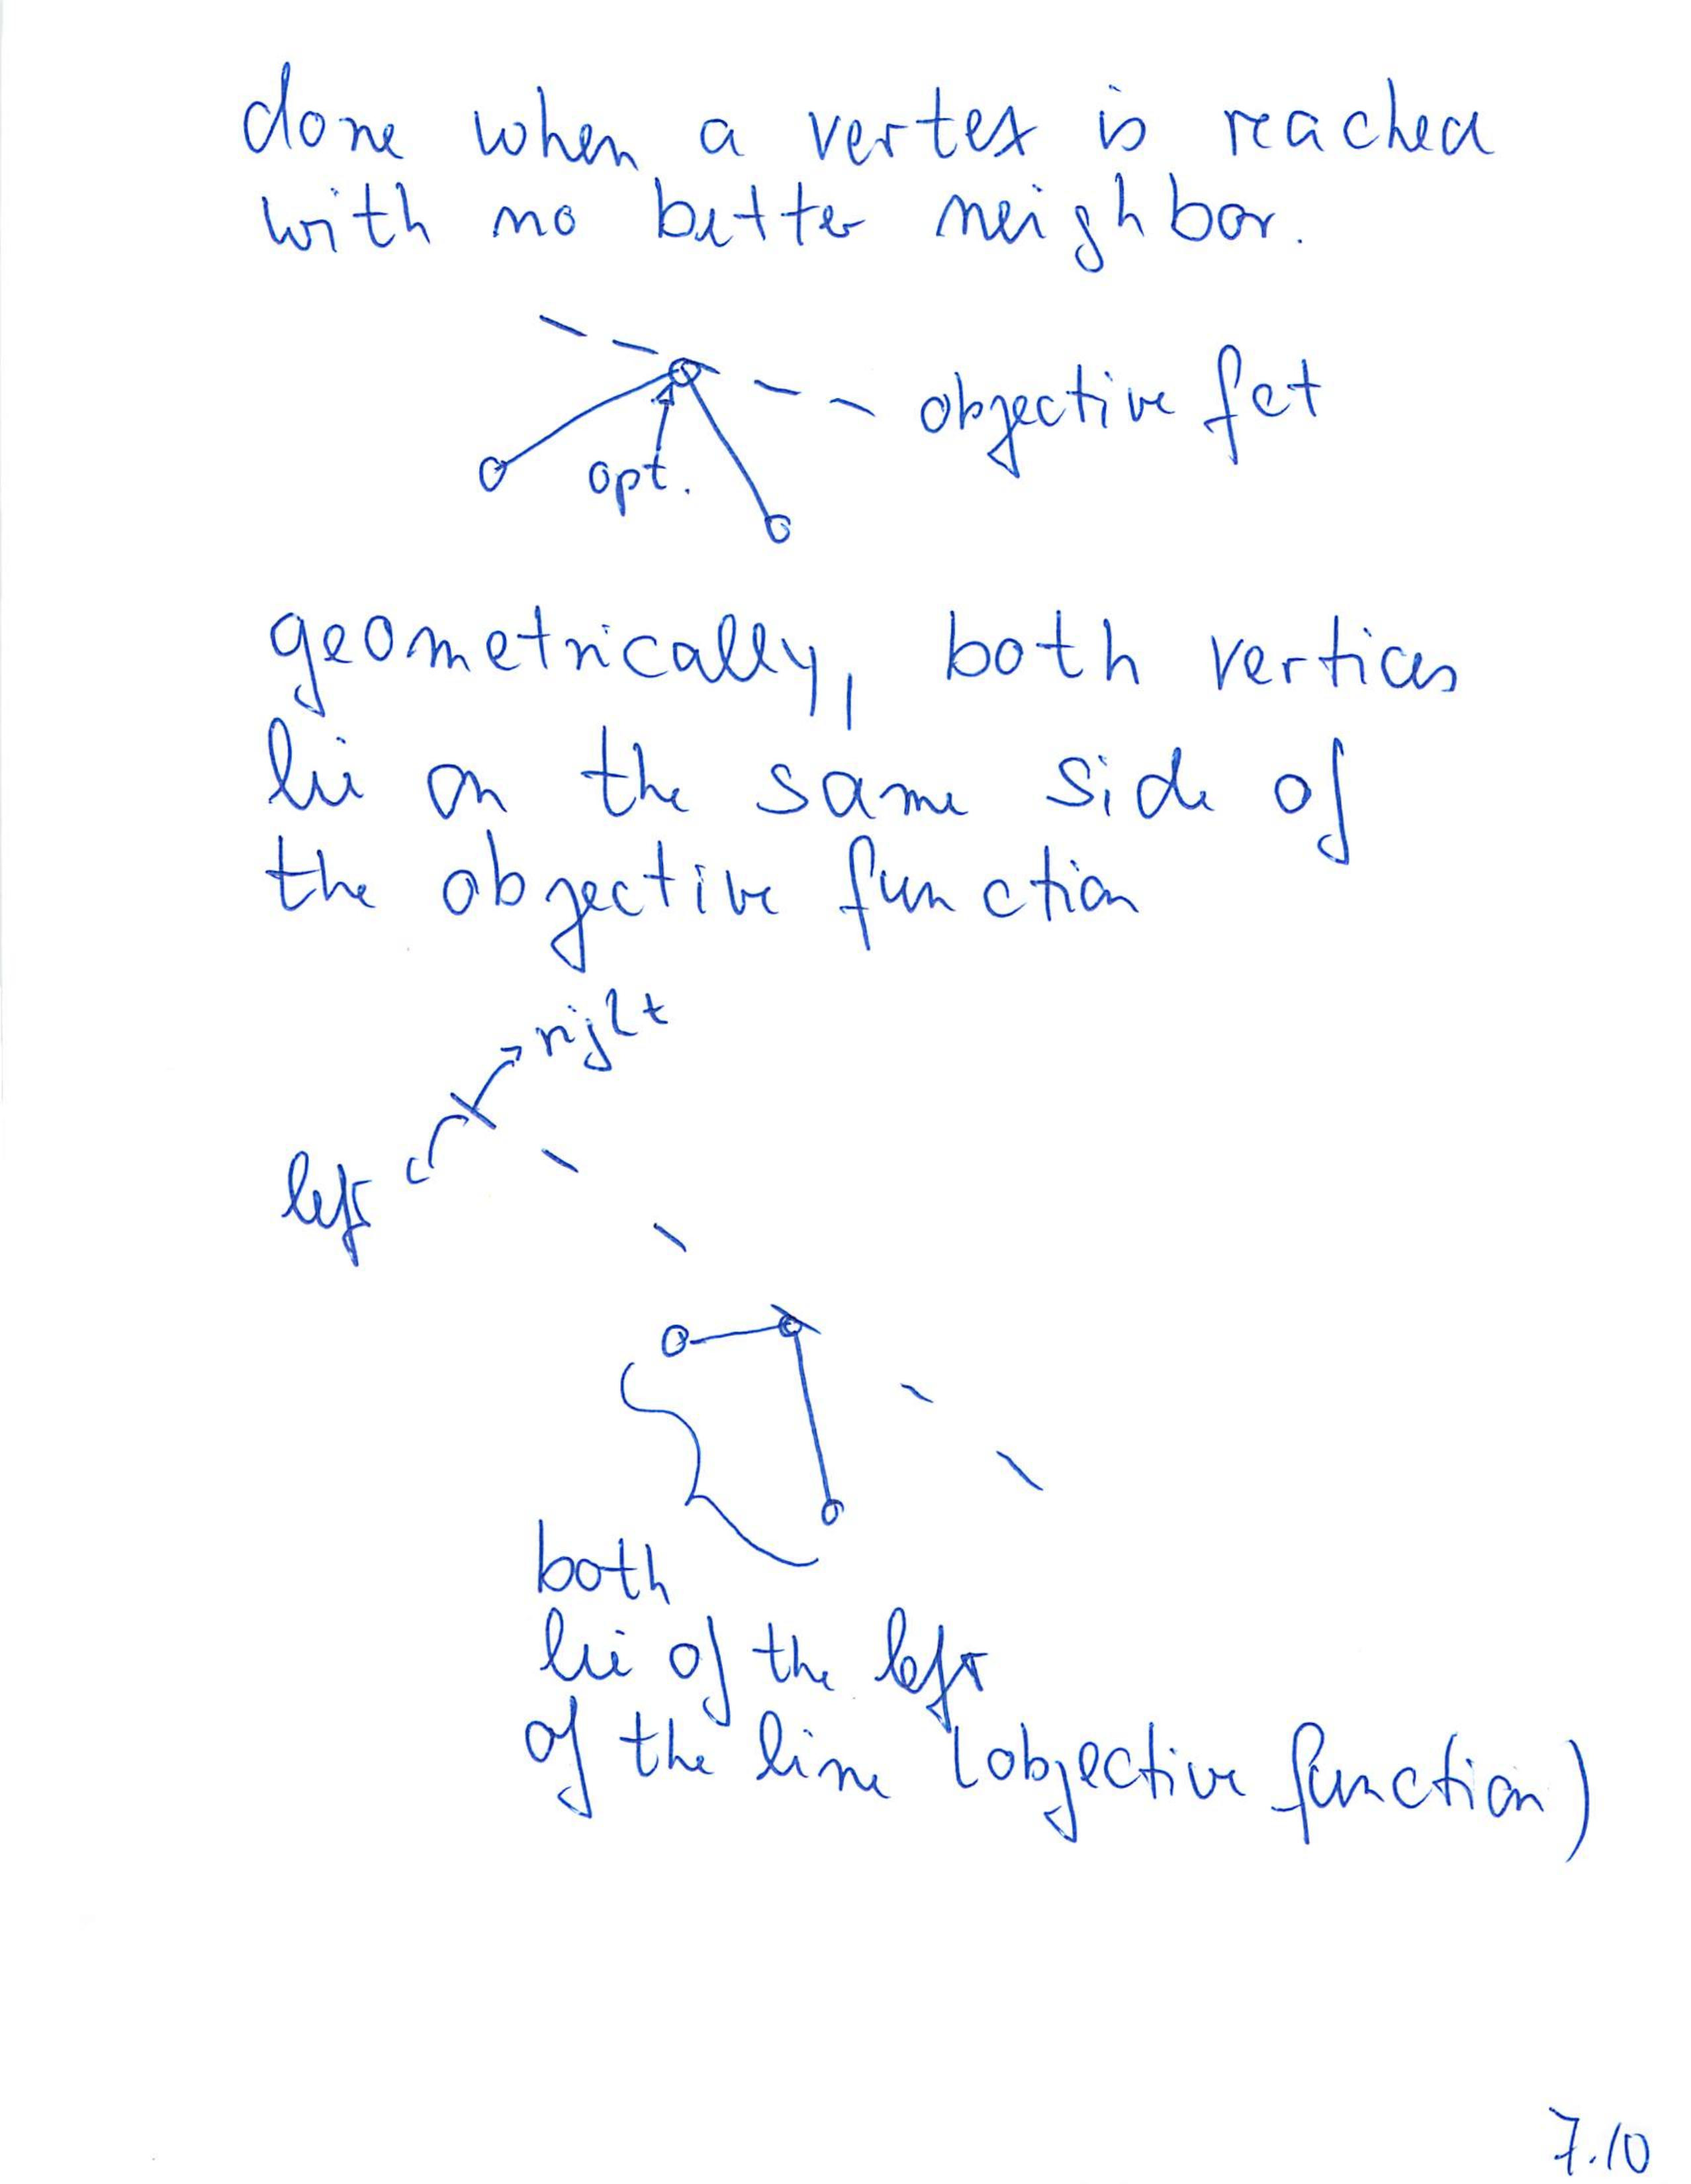 done when a vertex is reached
with no better neighbor.
objective fct
opt.
geometrically, both vertices
lie on the same side of
the objective function
right
left
both
lie of the left
of the line (objective function)
7.10